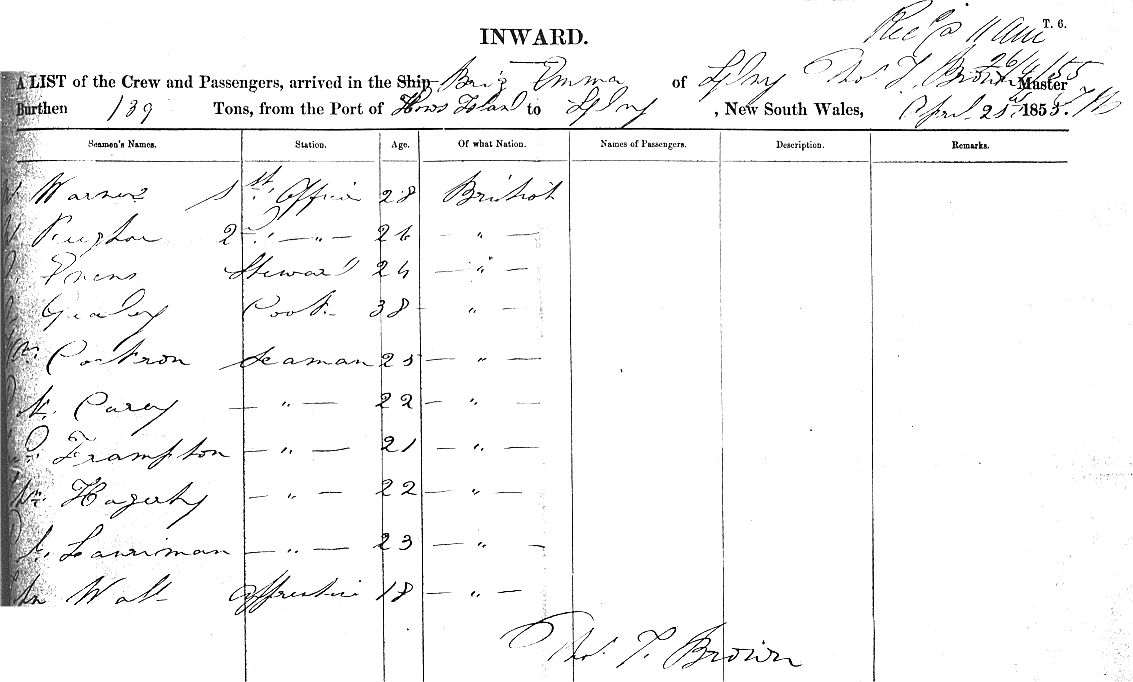 T. 6.
INWARD. Rec'd 11 am
26/4/55
A LIST of the Crew and Passengers, arrived in the Ship Brig Emma of Sydny Thos. T. Brown Master
Burthen 139 Tons, from the Port of Hows Island to Sydny, New South Wales, April 25th 1855.
Seamen's Names. Station. Age. Of what Nation. Names of Passengers. Description. Remarks.
Warner 1st. Officer 28 British
2nd. — " — 26 — " —
Evens Steward 24 — " —
Gealey Cook 38 — " —
Cockron Seaman 25 — " —
Carey — " — 22 — " —
Frampton — " — 21 — " —
Hagerty — " — 22 — " —
Larriman — " — 23 — " —
Jn Watt Apprentice 18 — " —
Thos. T. Brown